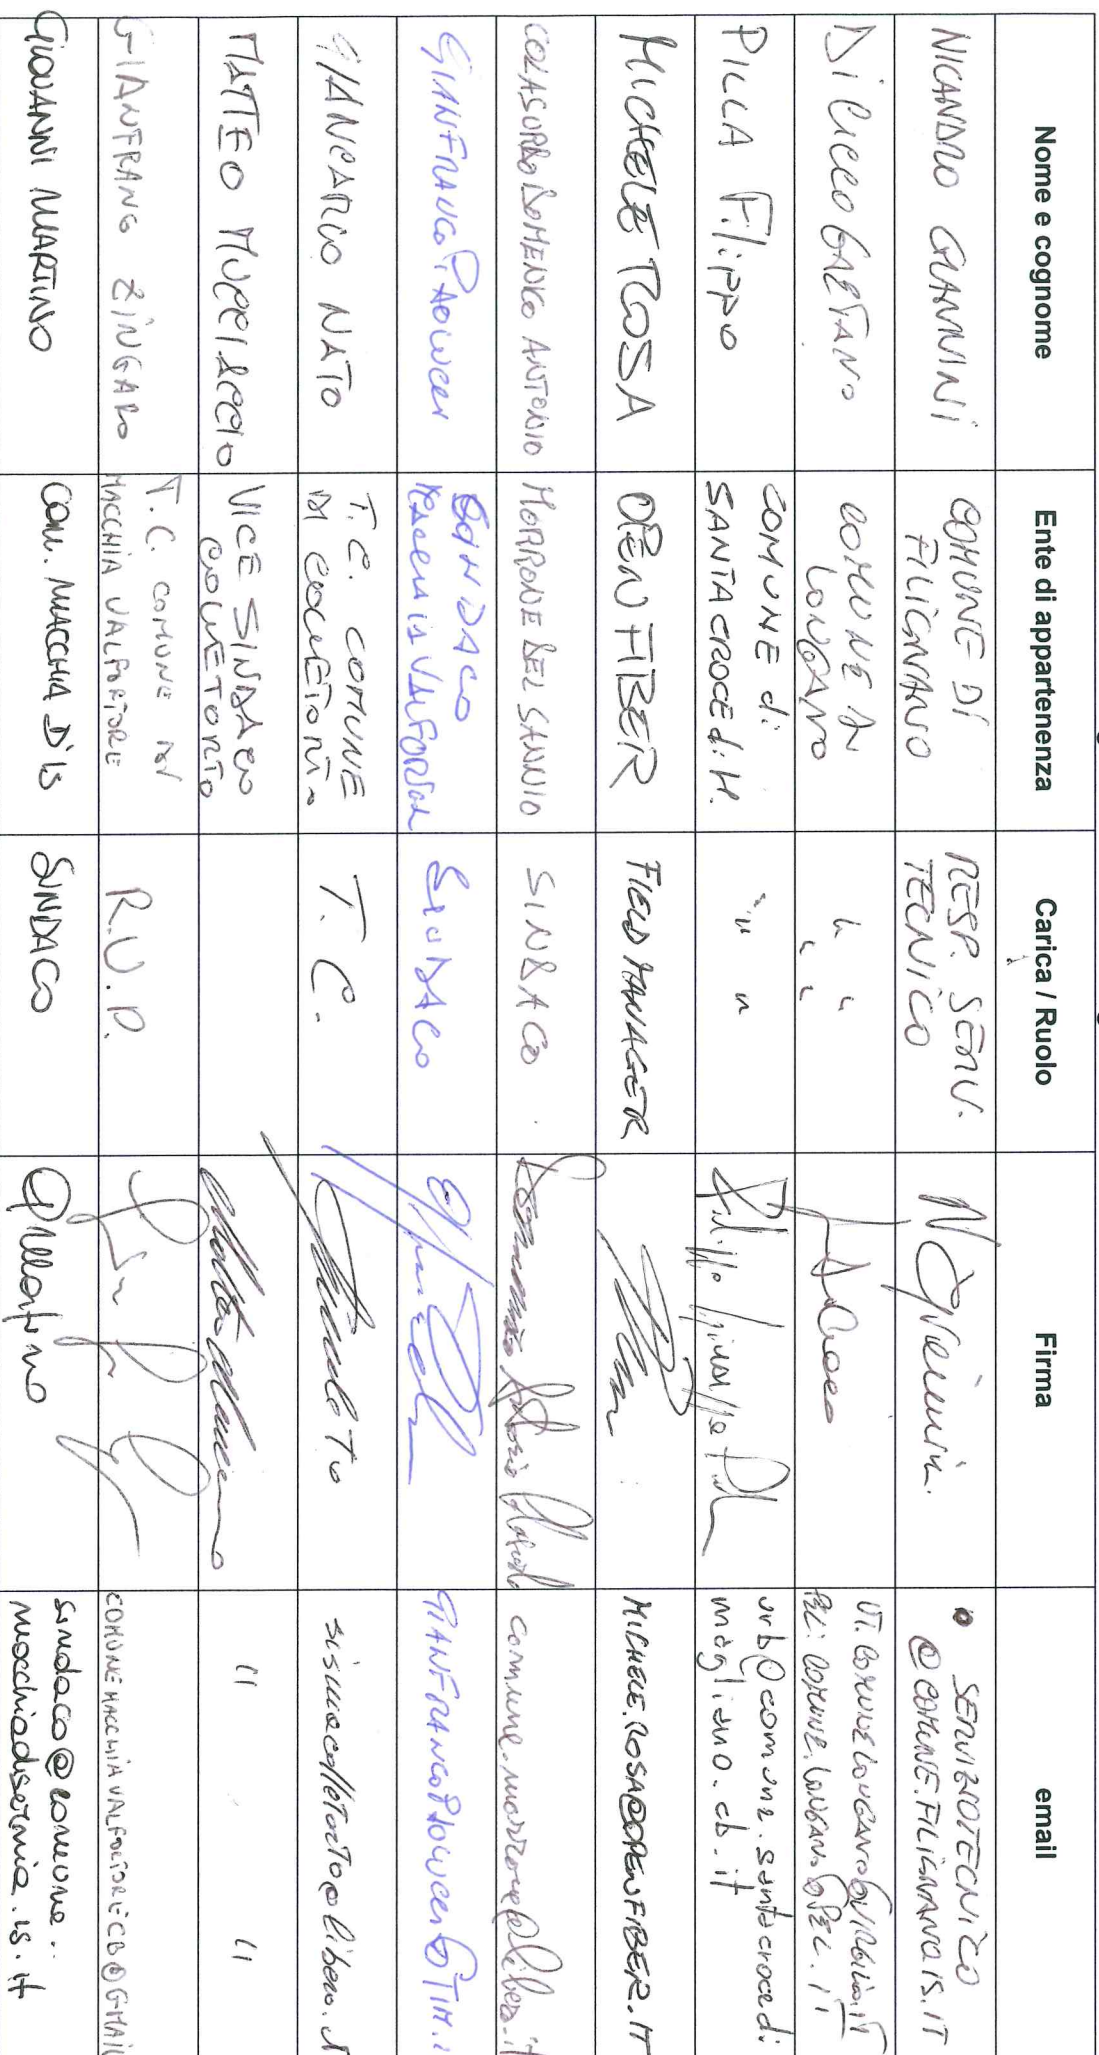 Nome e cognome Ente di appartenenza Carica / Ruolo Firma email
NICANDRO GIANNINI COMUNE DI FILIGNANO RESP. SERV. TECNICO SERVIZIOTECNICO @COMUNE.FILIGNANO.IS.IT
DI CICCO GAETANO COMUNE DI LONGANO " " " UT.COMUNELONGANO@VIRGILIO.IT PEC: COMUNE.LONGANO@PEC.IT
PILLA Filippo COMUNE di SANTA CROCE di M. " " urb@comune.santacrocedi magliano.cb.it
MICHELE ROSA OPEN FIBER FIELD MANAGER MICHELE.ROSA@OPENFIBER.IT
COLASURDO DOMENICO ANTONIO MORRONE DEL SANNIO SINDACO comune.morrone@libero.it
GIANFRANCO PAOLUCCI SINDACO VALFORTORE SINDACO GIANFRANCOPAOLUCCI@TIM.I
GIANCARLO NATO T.C. COMUNE DI COLLETORTO T.C. sismacolletorto@libero.
MATTEO VICE SINDACO COLLETORTO " "
GIANFRANCO ZINGARO T.C. COMUNE DI MACCHIA VALFORTORE R.U.P. COMUNEMACCHIAVALFORTORECB@GMAIL
GIOVANNI MARTINO COM. MACCHIA D'IS SINDACO GMartino sindaco@comune. macchiadisernia.is.it